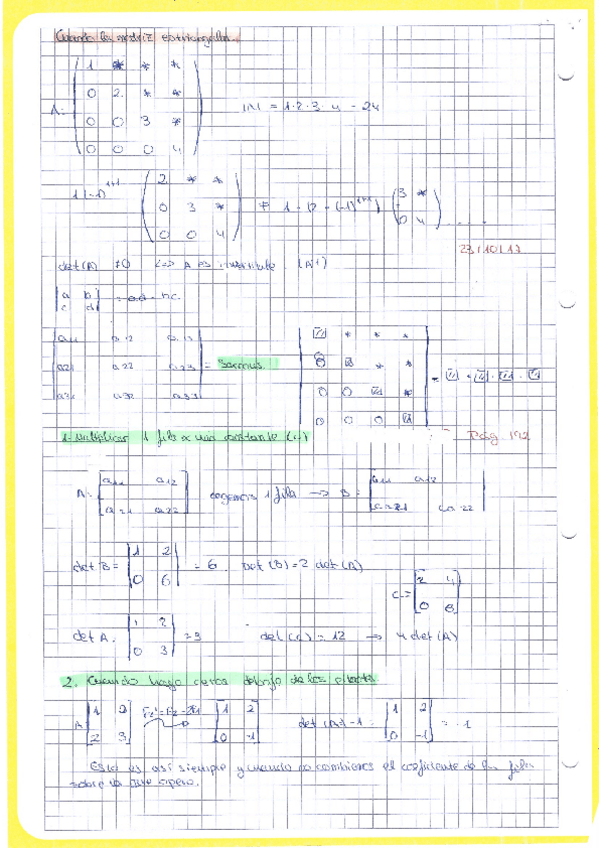 Cuando la matriz es triangular.
A = ( 1 * * *
0 2 * *
0 0 3 *
0 0 0 4 ) |A| = 1·2·3·4 = 24
1 (-1)^1+1 ( 2 * *
0 3 *
0 0 4 ) 1 · (2 · (-1)^1+1) ( 3 *
0 4 ) . . . .
23/10/17
det (A) ≠0 <=> A es invertible
| a b
c d | = ad - bc.
| a11 a12 a13
a21 a22 a23
a31 a32 a33 | = Sarrus.
* * *
0 * *
0 0 *
0 0 0
1. Multiplicar 1 fila x una constante (c) Pág 172
A = [ a11 a12
a21 a22 ] cogemos 1 fila → B = [ a11 a12
ca21 ca22 ]
det B = | 1 2
0 6 | = 6. Det (B) = 2 det (A)
C = [ 2 4
0 6 ]
det A = | 1 2
0 3 | = 3 det (C) = 12 → 4 det (A)
2. Cuando hago ceros debajo de los pivotes
A = [ 1 2
2 3 ] F2' = F2 - 2F1 [ 1 2
0 -1 ] | 1 2
0 -1 | = -1
Esto es así siempre y cuando no cambiemos el coeficiente de la fila
sobre la que opero.